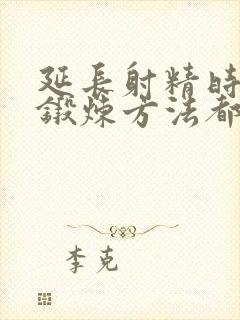 延長射精時
鍛煉方法都
李克